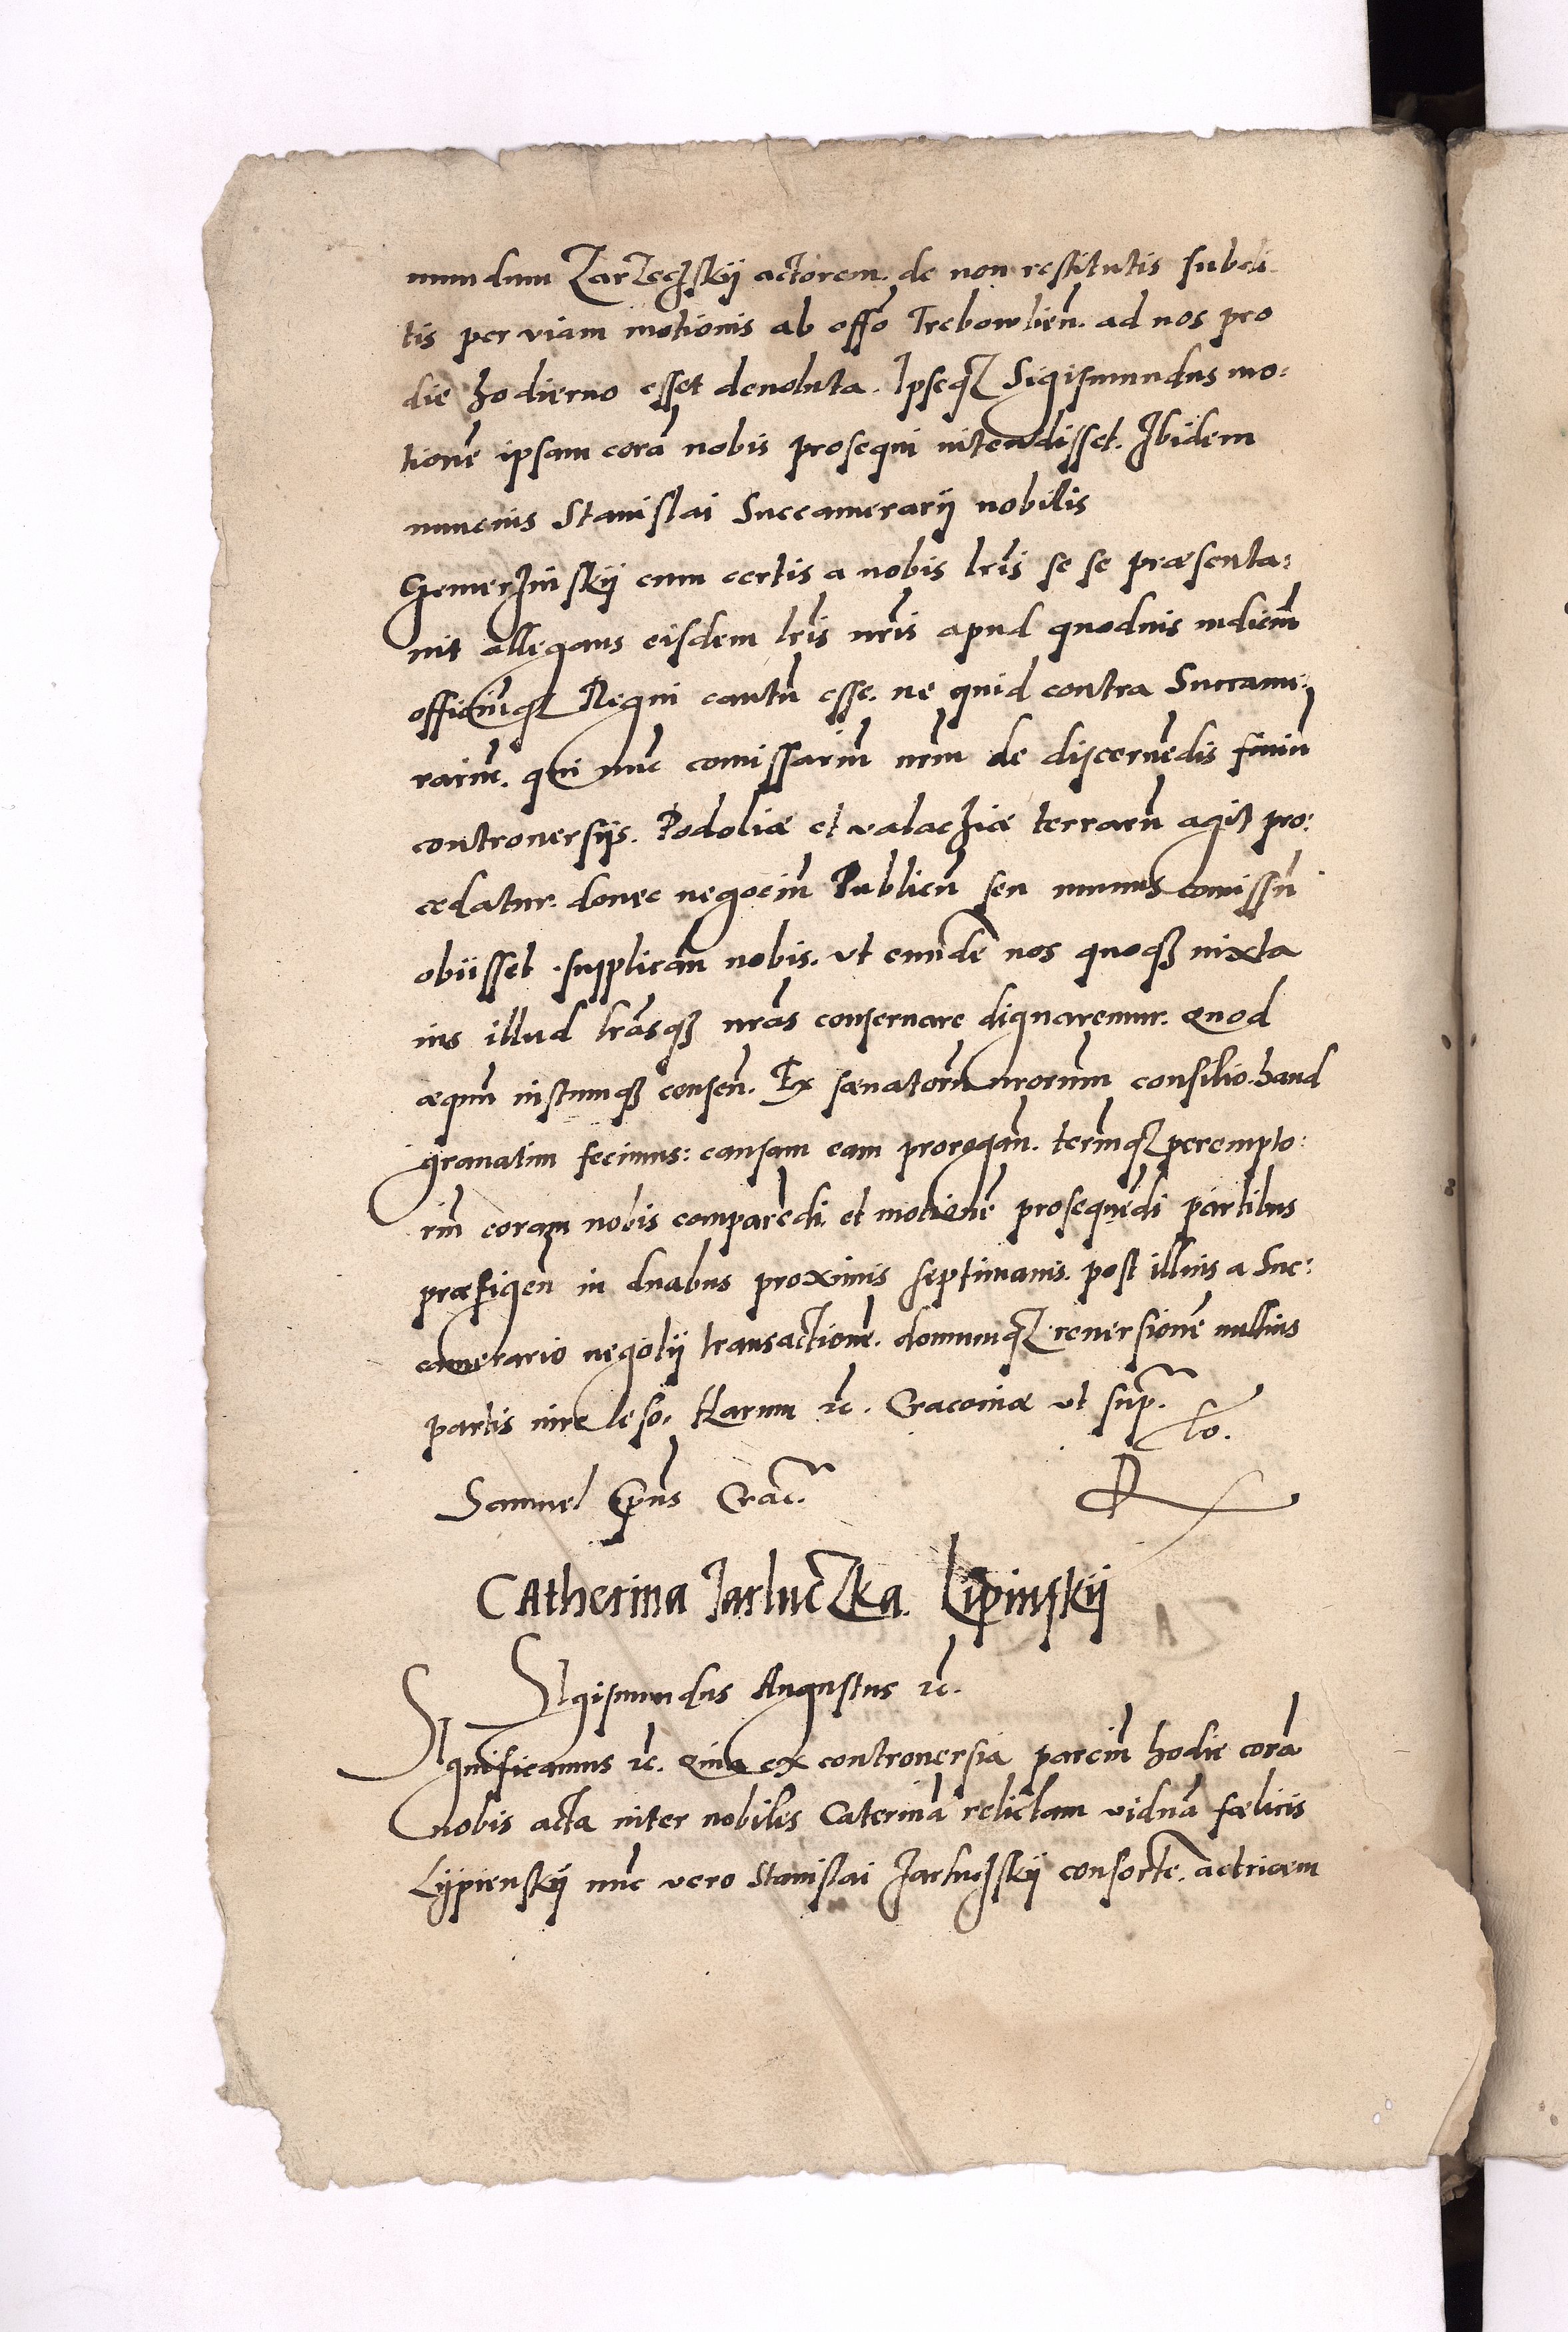 mundum Zarzeczskij actorem. de non restitutis subdi-
tis per viam motionis ab offõ Trebowlieñ. ad nos pro
die hodierno esset devoluta. Ipseq₃ Sigismundus mo:
tionẽ ipsam corã nobis prosequi intendisset. Ibidem
nuncius Stanislai Succamerarij nobilis
cum certis a nobis lris se se præsenta:
vit allegans eisdem lris nris apud quodvis iudiciũ
officiũq₃ Regni cautũ esse. ne quid contra Succame:
rariũ. qui nũc comissariũ nrm de discernẽdis finiũ
controversijs. Podoliæ et valachiæ terrarũ agit pro:
cedatur. donec negociũ Publicũ seu munus comissũ
obiisset. supplicañ nobis. vt eundẽ nos quoq₃ iuxta
ius illud lrasq₃ nras conservare dignaremur. Quod
æquũ iustumq₃ censeñ. Ex sænatorũ nrorum consilio. haud
gravatim fecimus: causam eam prorogañ. termĩq₃ perempto:
riũ coram nobis comparẽdi et motionẽ prosequẽdi partibus
præfigeñ in duabus proximis septimanis. post illius a Suc:
camerario negotij transactionẽ. domumq₃ reversionẽ nullius
partis iure leso. Harum ꝛc. Cracoviæ vt sup.
to.
Samuel Eṗus Crac.
Rx
CAtherina Jarluczka. Lipinskij
SIgismundus Augustus ꝛc.
SIgnificamus ꝛc. Quia ex controversia parciũ hodie corã
nobis acta inter nobiles Caterinã relictam viduã fœlicis
Lijpienskij nũc vero Stanislai Jarluczskij consortẽ. actricem